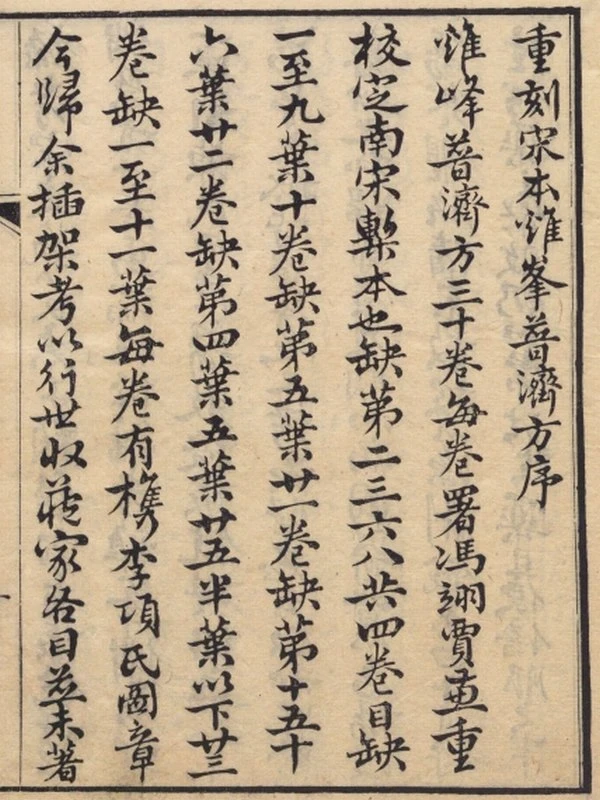 重刻宋本雞峯普濟方序
雞峰普濟方三十卷每卷署馮翊賈兼重
校定南宋槧本也缺第二三六八共四卷目缺
一至九葉十卷缺第五葉廿一卷缺第十五十
六葉廿二卷缺第四葉五葉廿五半葉以下廿三
卷缺一至十一葉每卷有檇李項氏圖章
今歸余插架考以行世收藏家各目並未著